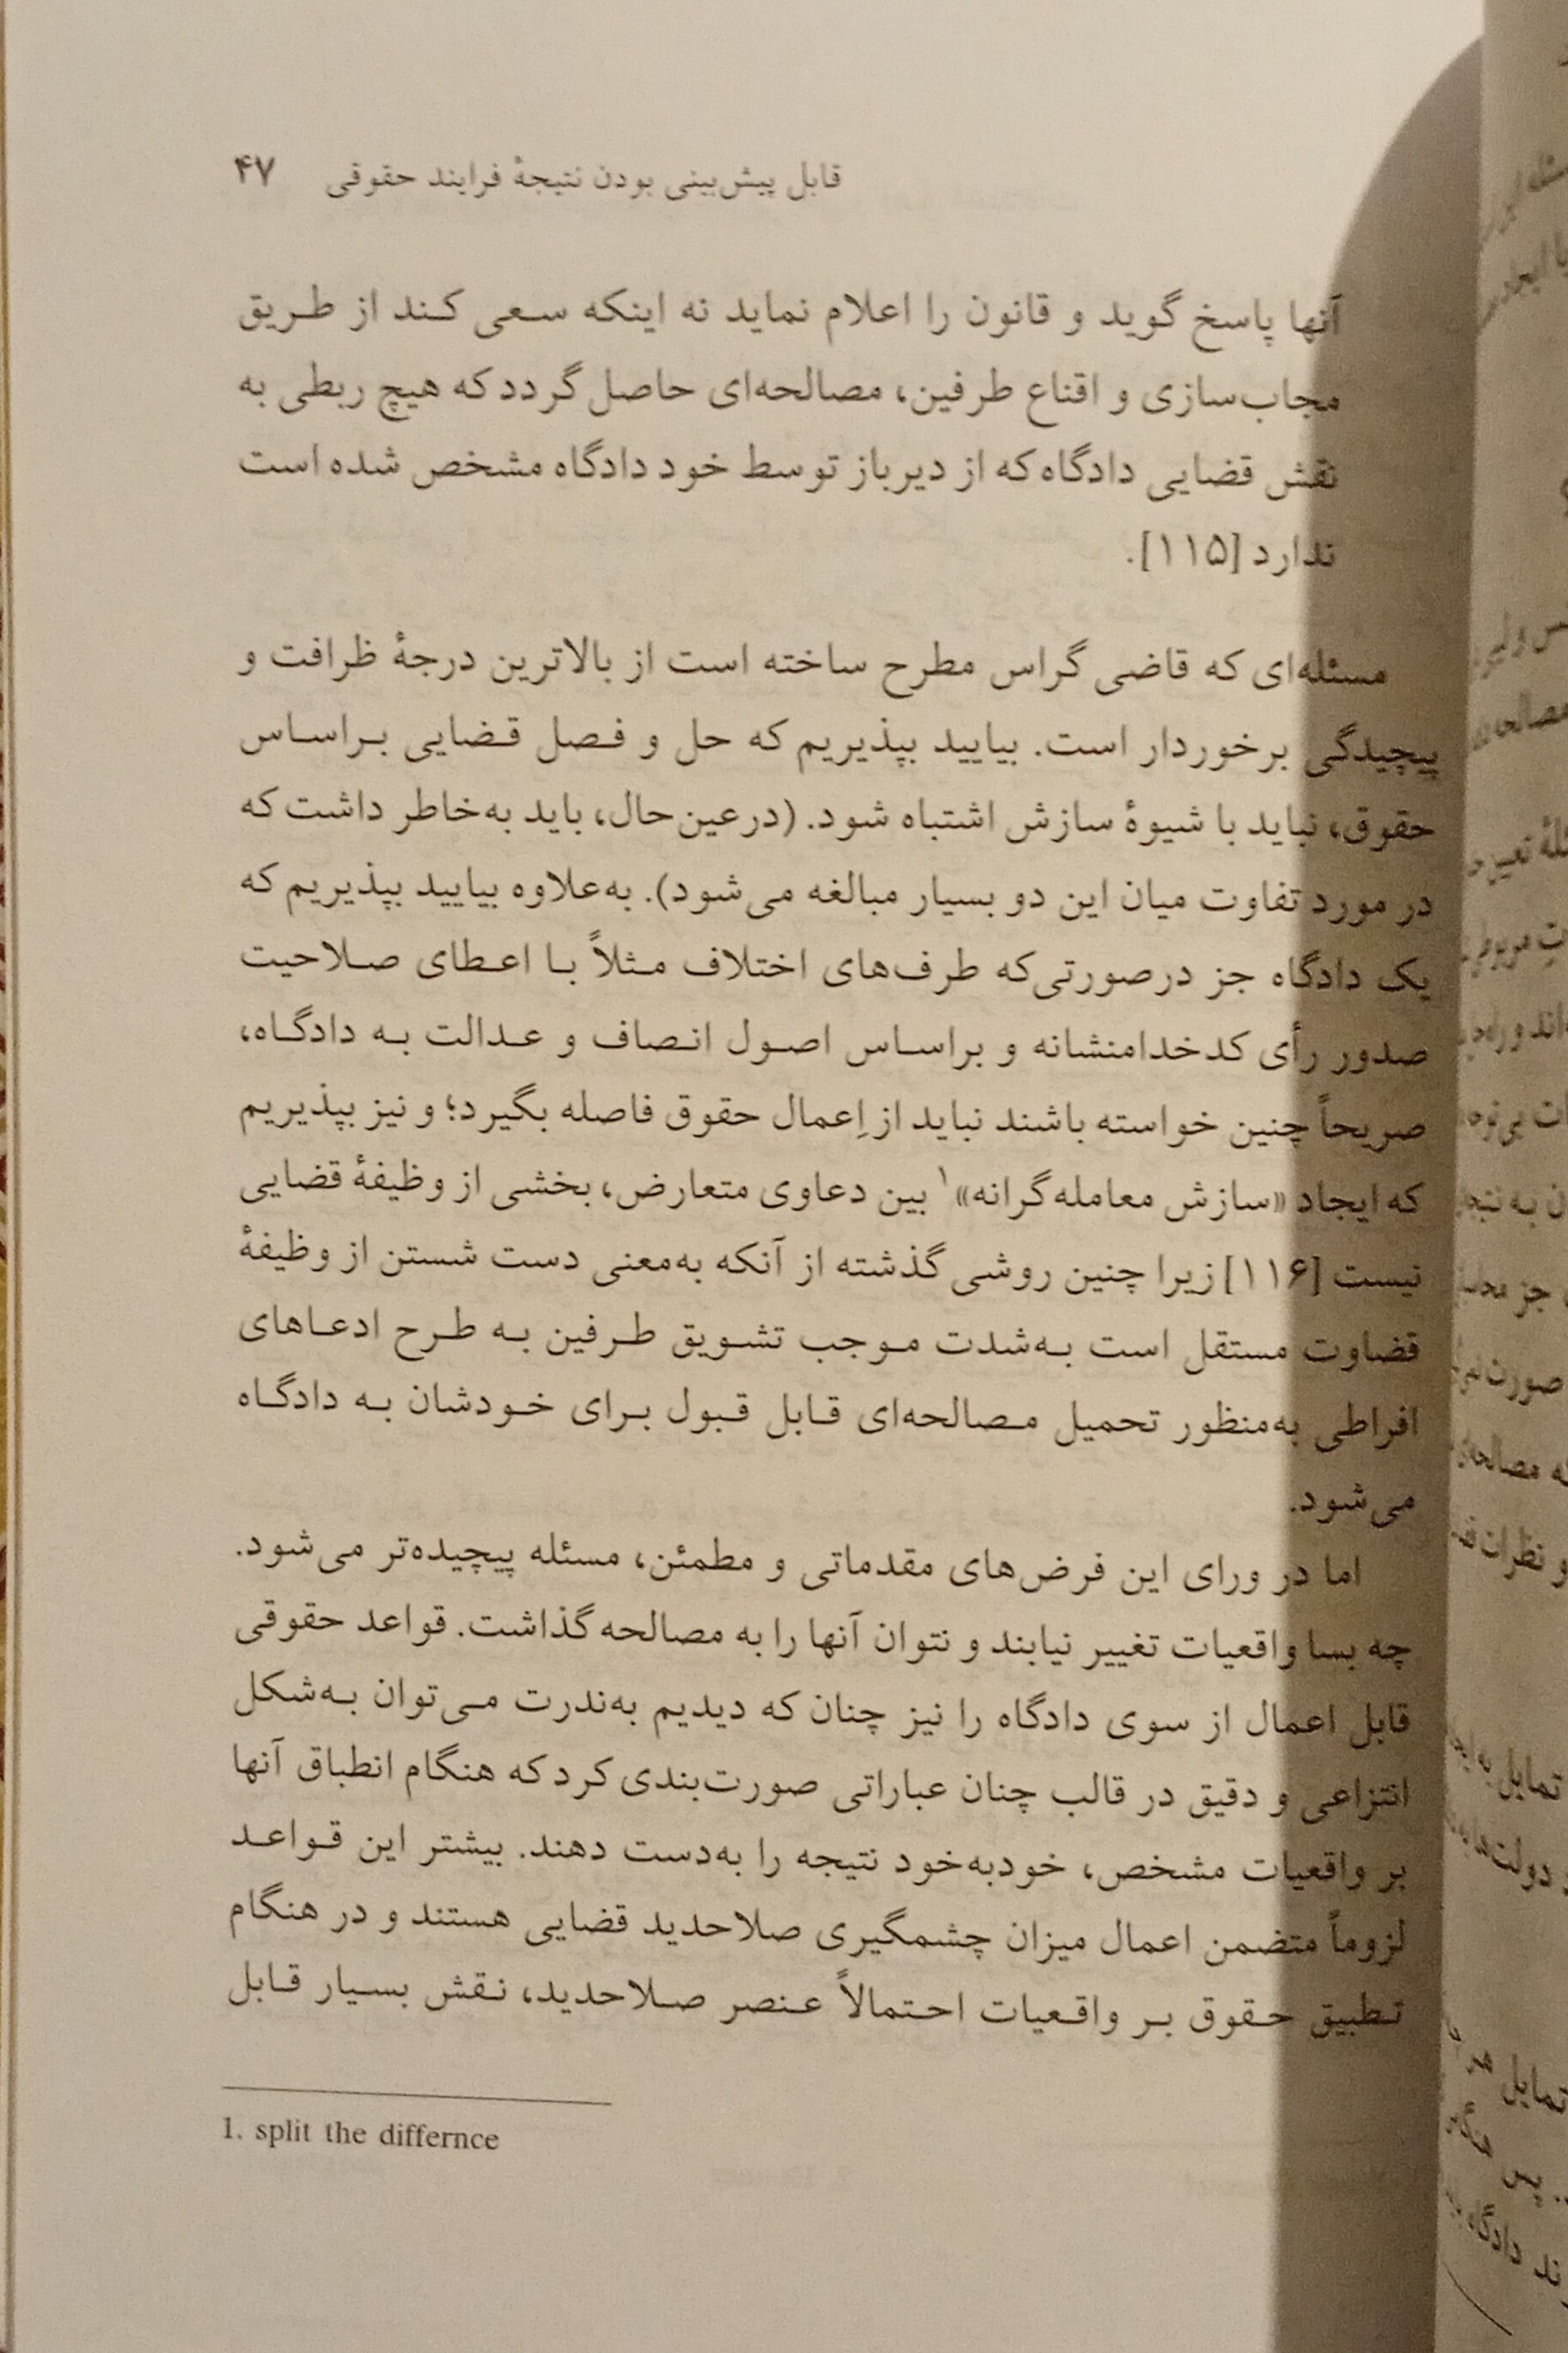 قابل پیش‌بینی بودن نتیجهٔ فرایند حقوقی ۴۷
آنها پاسخ گوید و قانون را اعلام نماید نه اینکه سعی کند از طریق
مجاب‌سازی و اقناع طرفین، مصالحه‌ای حاصل گردد که هیچ ربطی به
نقش قضایی دادگاه که از دیرباز توسط خود دادگاه مشخص شده است
ندارد [۱۱۵].
مسئله‌ای که قاضی گراس مطرح ساخته است از بالاترین درجهٔ ظرافت و
پیچیدگی برخوردار است. بیایید بپذیریم که حل و فصل قضایی براساس
حقوق، نباید با شیوهٔ سازش اشتباه شود. (درعین‌حال، باید به‌خاطر داشت که
در مورد تفاوت میان این دو بسیار مبالغه می‌شود). به‌علاوه بیایید بپذیریم که
یک دادگاه جز درصورتی‌که طرف‌های اختلاف مثلاً با اعطای صلاحیت
صدور رأی کدخدامنشانه و براساس اصول انصاف و عدالت به دادگاه،
صریحاً چنین خواسته باشند نباید از اِعمال حقوق فاصله بگیرد؛ و نیز بپذیریم
که ایجاد «سازش معامله‌گرانه»۱ بین دعاوی متعارض، بخشی از وظیفهٔ قضایی
نیست [۱۱۶] زیرا چنین روشی گذشته از آنکه به‌معنی دست شستن از وظیفهٔ
قضاوت مستقل است به‌شدت موجب تشویق طرفین به طرح ادعاهای
افراطی به‌منظور تحمیل مصالحه‌ای قابل قبول برای خودشان به دادگاه
می‌شود.
اما در ورای این فرض‌های مقدماتی و مطمئن، مسئله پیچیده‌تر می‌شود.
چه بسا واقعیات تغییر نیابند و نتوان آنها را به مصالحه گذاشت. قواعد حقوقی
قابل اعمال از سوی دادگاه را نیز چنان که دیدیم به‌ندرت می‌توان به‌شکل
انتزاعی و دقیق در قالب چنان عباراتی صورت‌بندی کرد که هنگام انطباق آنها
بر واقعیات مشخص، خودبه‌خود نتیجه را به‌دست دهند. بیشتر این قواعد
لزوماً متضمن اعمال میزان چشمگیری صلاحدید قضایی هستند و در هنگام
تطبیق حقوق بر واقعیات احتمالاً عنصر صلاحدید، نقش بسیار قابل
1. split the differnce